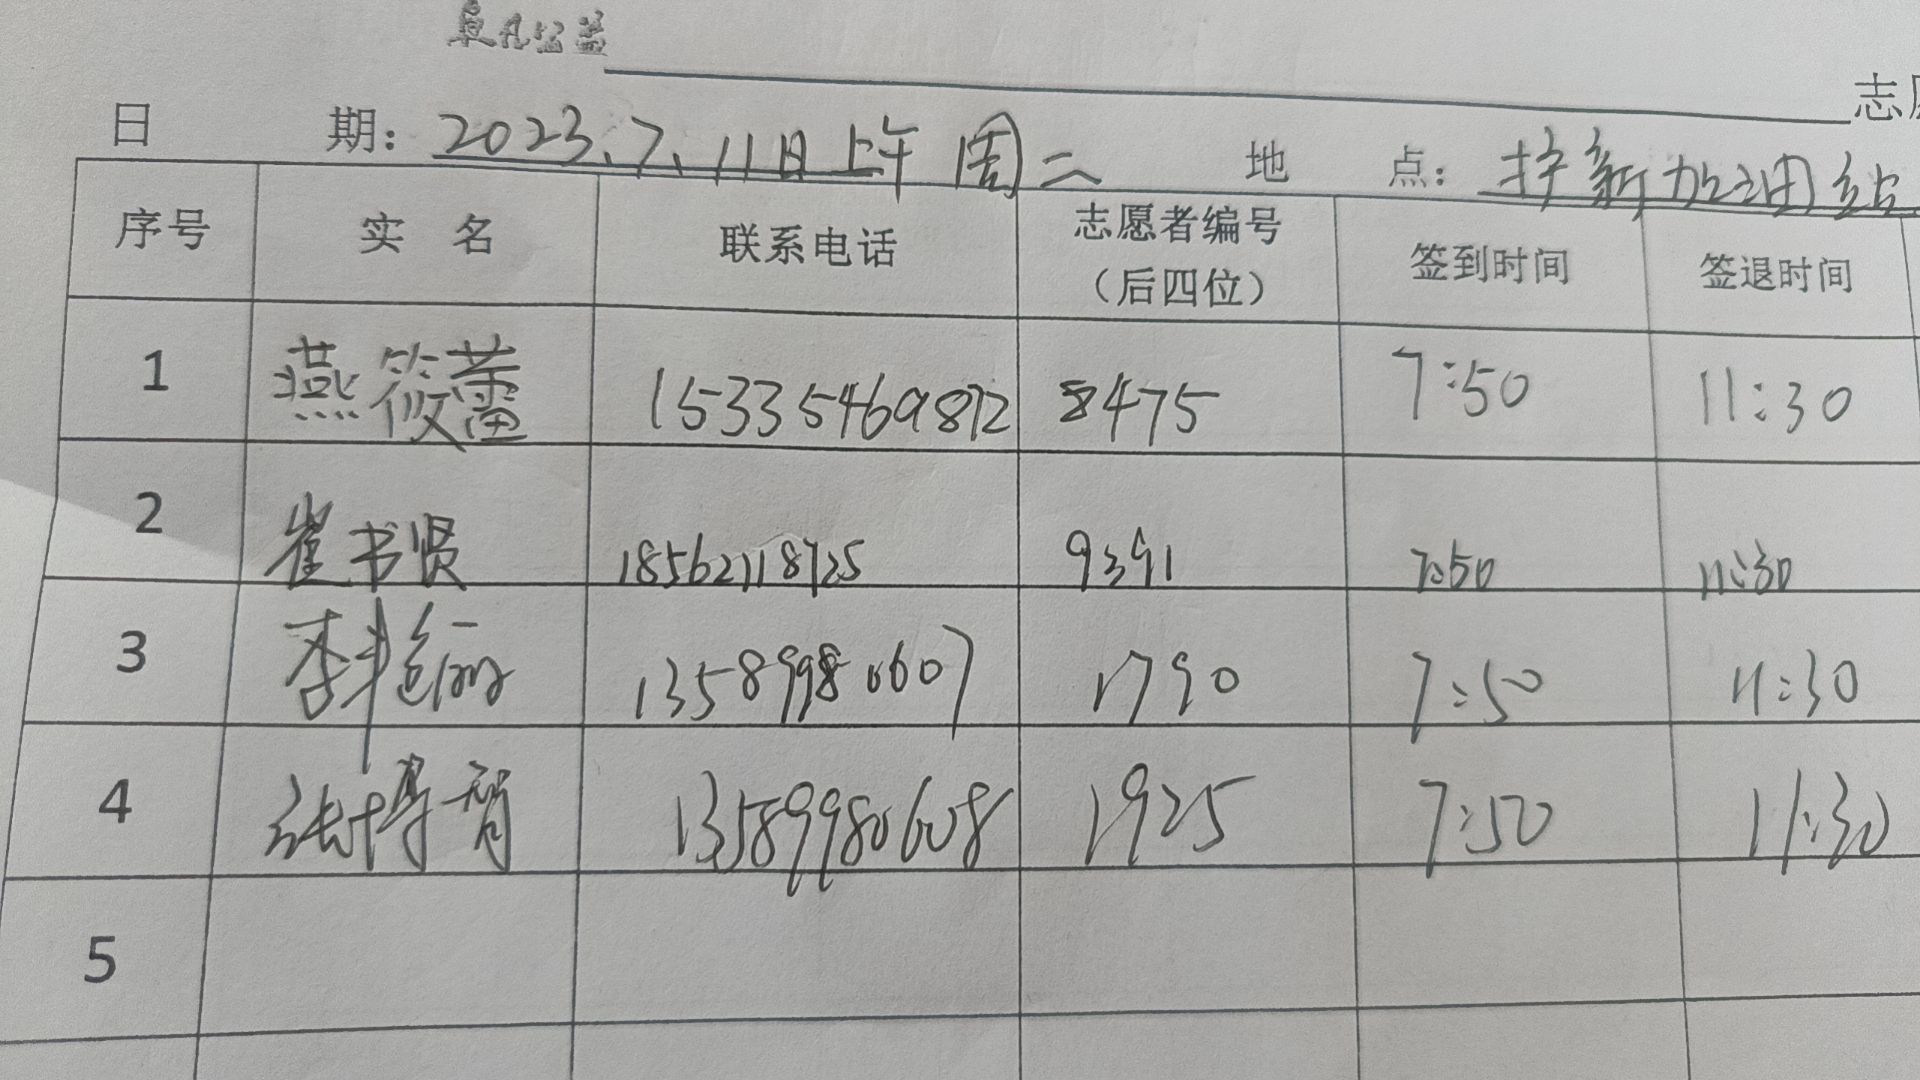 公益
志愿
日 期：2023.7.11日上午 周二 地 点：护新加油站
序号 实 名 联系电话 志愿者编号（后四位） 签到时间 签退时间
1 燕筱蕾 15335469872 8475 7:50 11:30
2 崔书贤 18562118725 9391 7:50 11:30
3 李 13589980607 1790 7:50 11:30
4 张博智 13589980608 1925 7:50 11:30
5